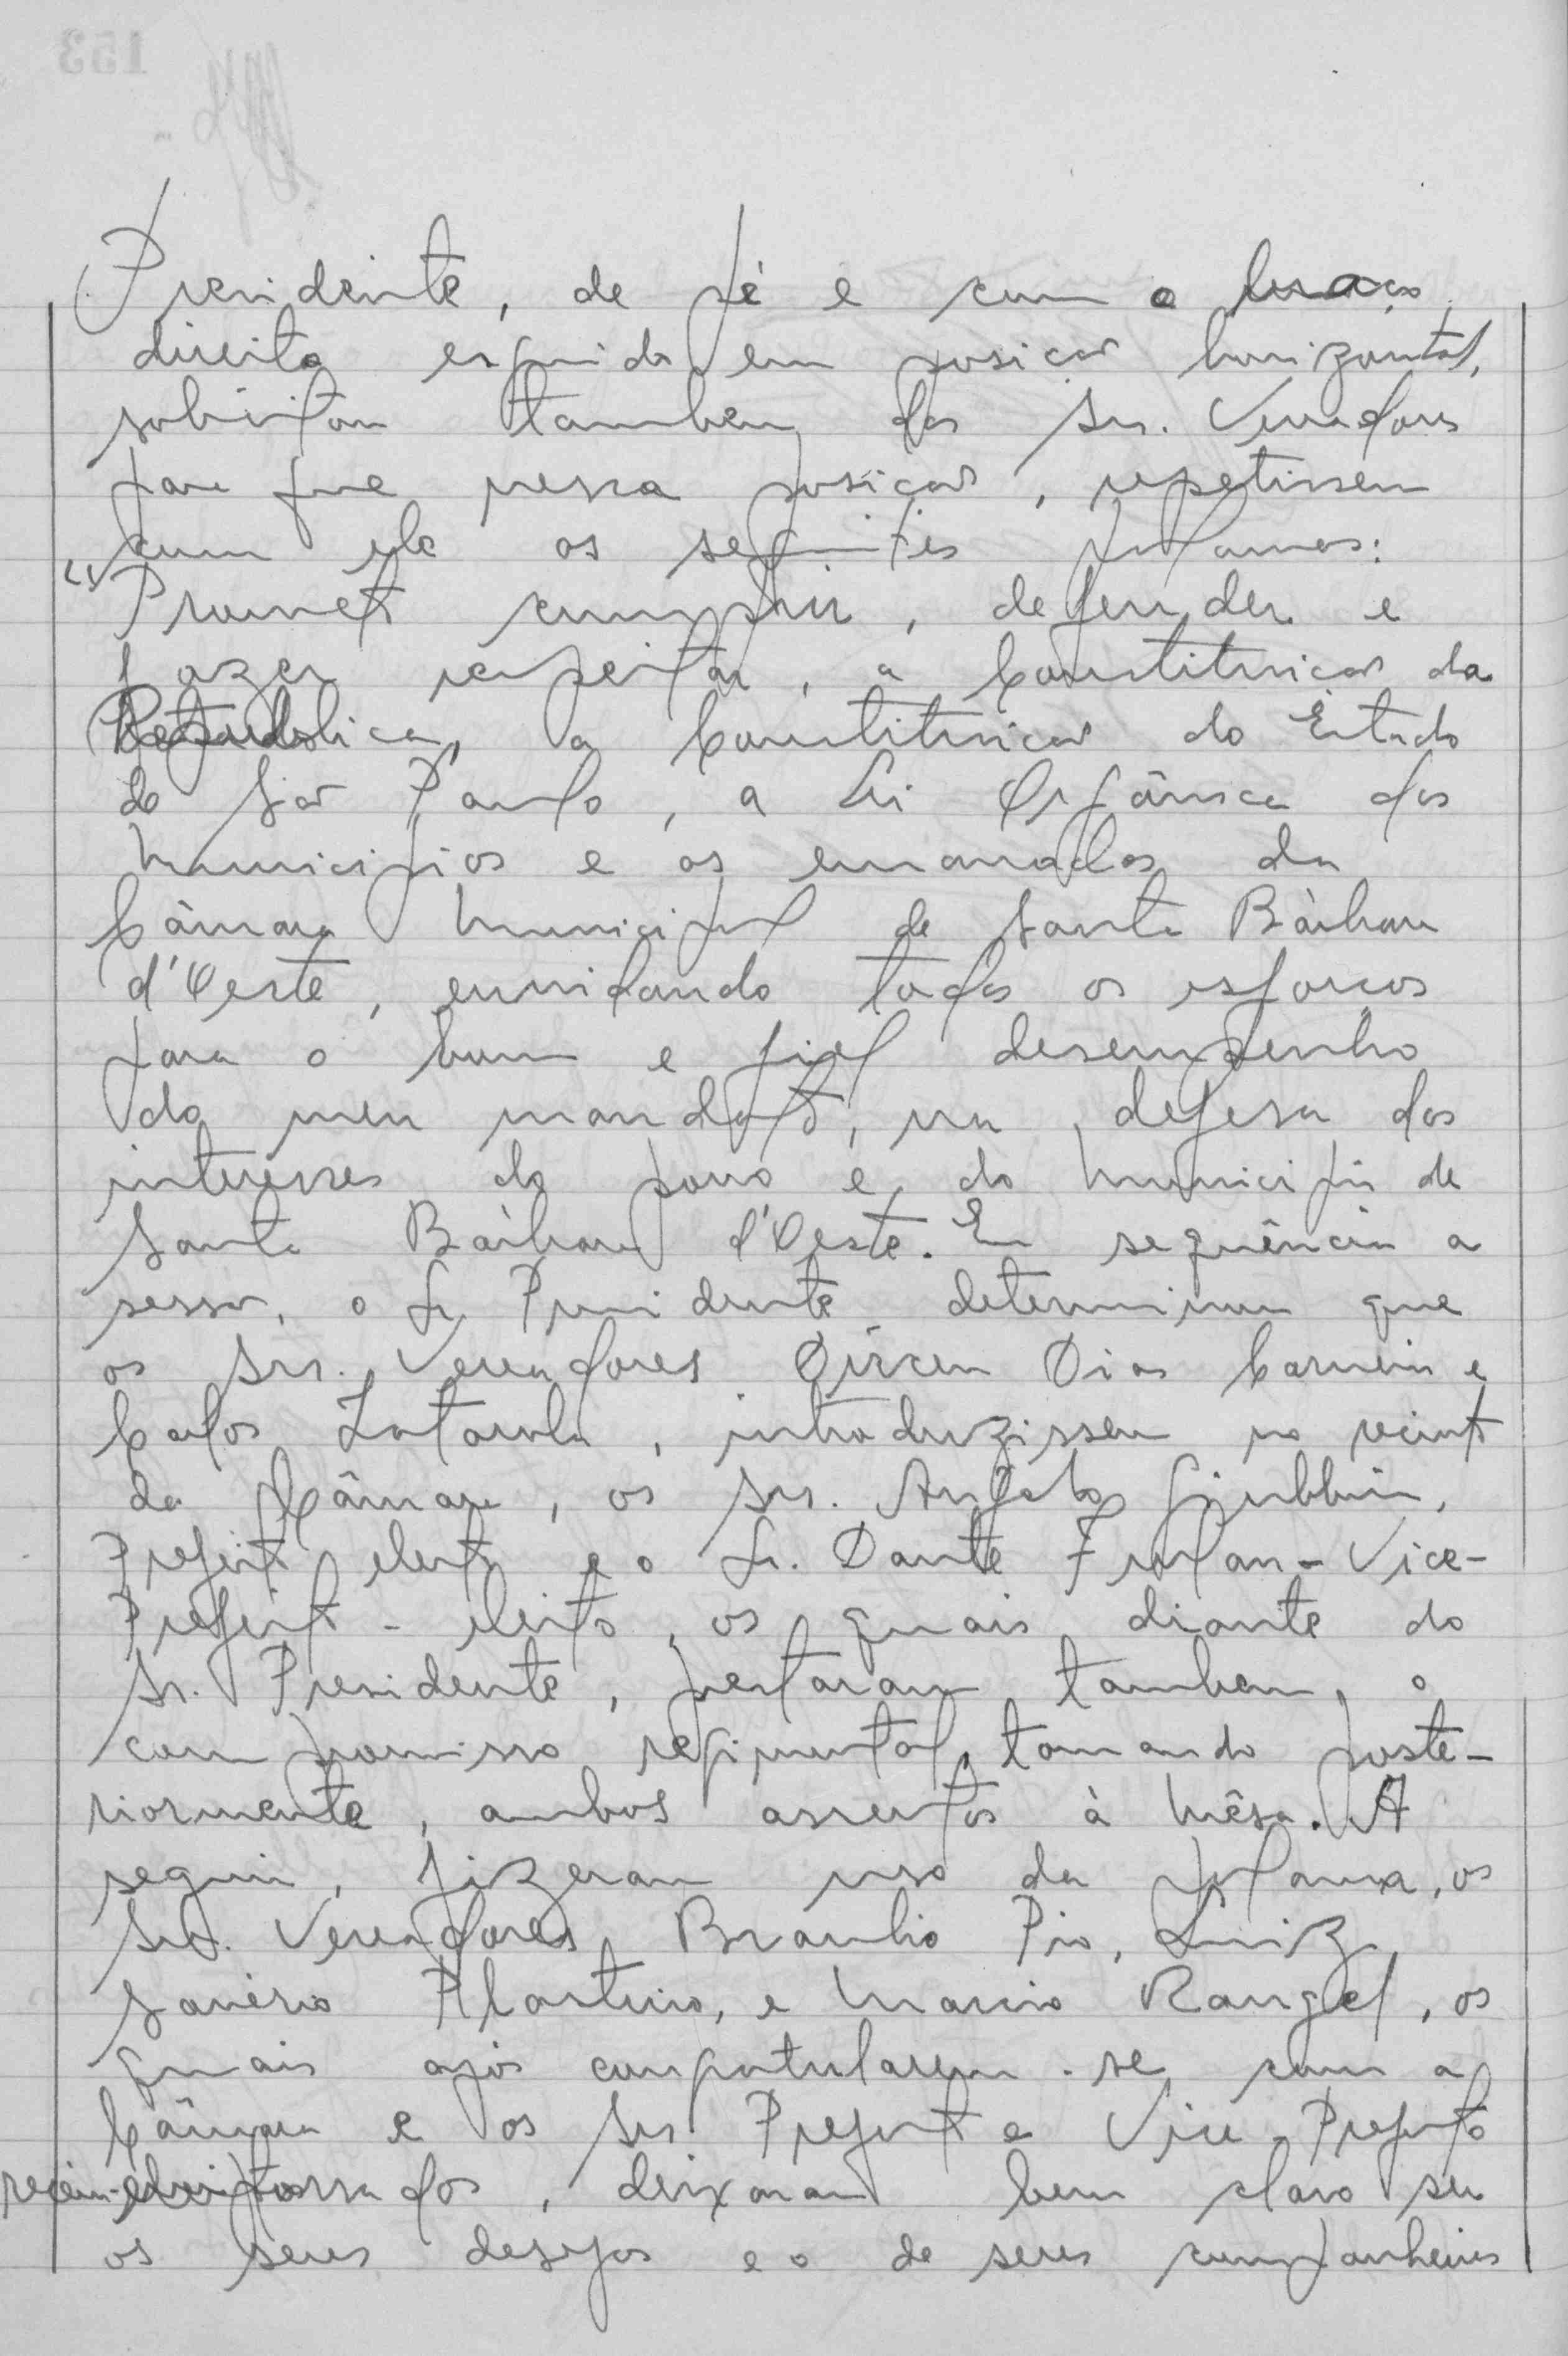 Presidente, de pé e com o braço
direito erguido em posição horizontal,
solicitou tambem dos Srs. Vereadores
para que nessa posição, repetissem
com ele os seguintes palavras:
"Prometo cumprir, defender e
fazer respeitar, a Constituição da
Republica, a Constituição do Estado
de São Paulo, a Lei Orgânica dos
Municipios e as emanadas da
Câmara Municipal de Santa Bàrbara
d'Oeste, envidando todos os esforços
para o bom e fiel desempenho
do meu mandato, na defesa dos
interesses do povo e do Municipio de
Santa Bàrbara d'Oeste. Em seqüência a
sessão, o Sr. Presidente determinou que
os Srs. Vereadores Dirceu Dias Carneiro e
Carlos, introduzissem no recinto
da Câmara, os Srs. Angelo Giubbina,
Prefeito eleito e o Sr. Dante Furlan - Vice-
Prefeito - eleito, os quais diante do
Sr. Presidente, prestaram tambem, o
compromisso regimental, tomando poste-
riormente, ambos assentos à Mêsa. A
seguir, fizeram uso da palavra, os
Srs. Vereadores Braulio Pio, Luiz
Saverio Plastino, e Marino Rangel, os
quais após congratularem-se com a
Câmara e os Srs. Prefeito e Vice-Prefeito
recém-empossados, deixaram bem claro ser
os seus desejos e o de seus companheiros
153